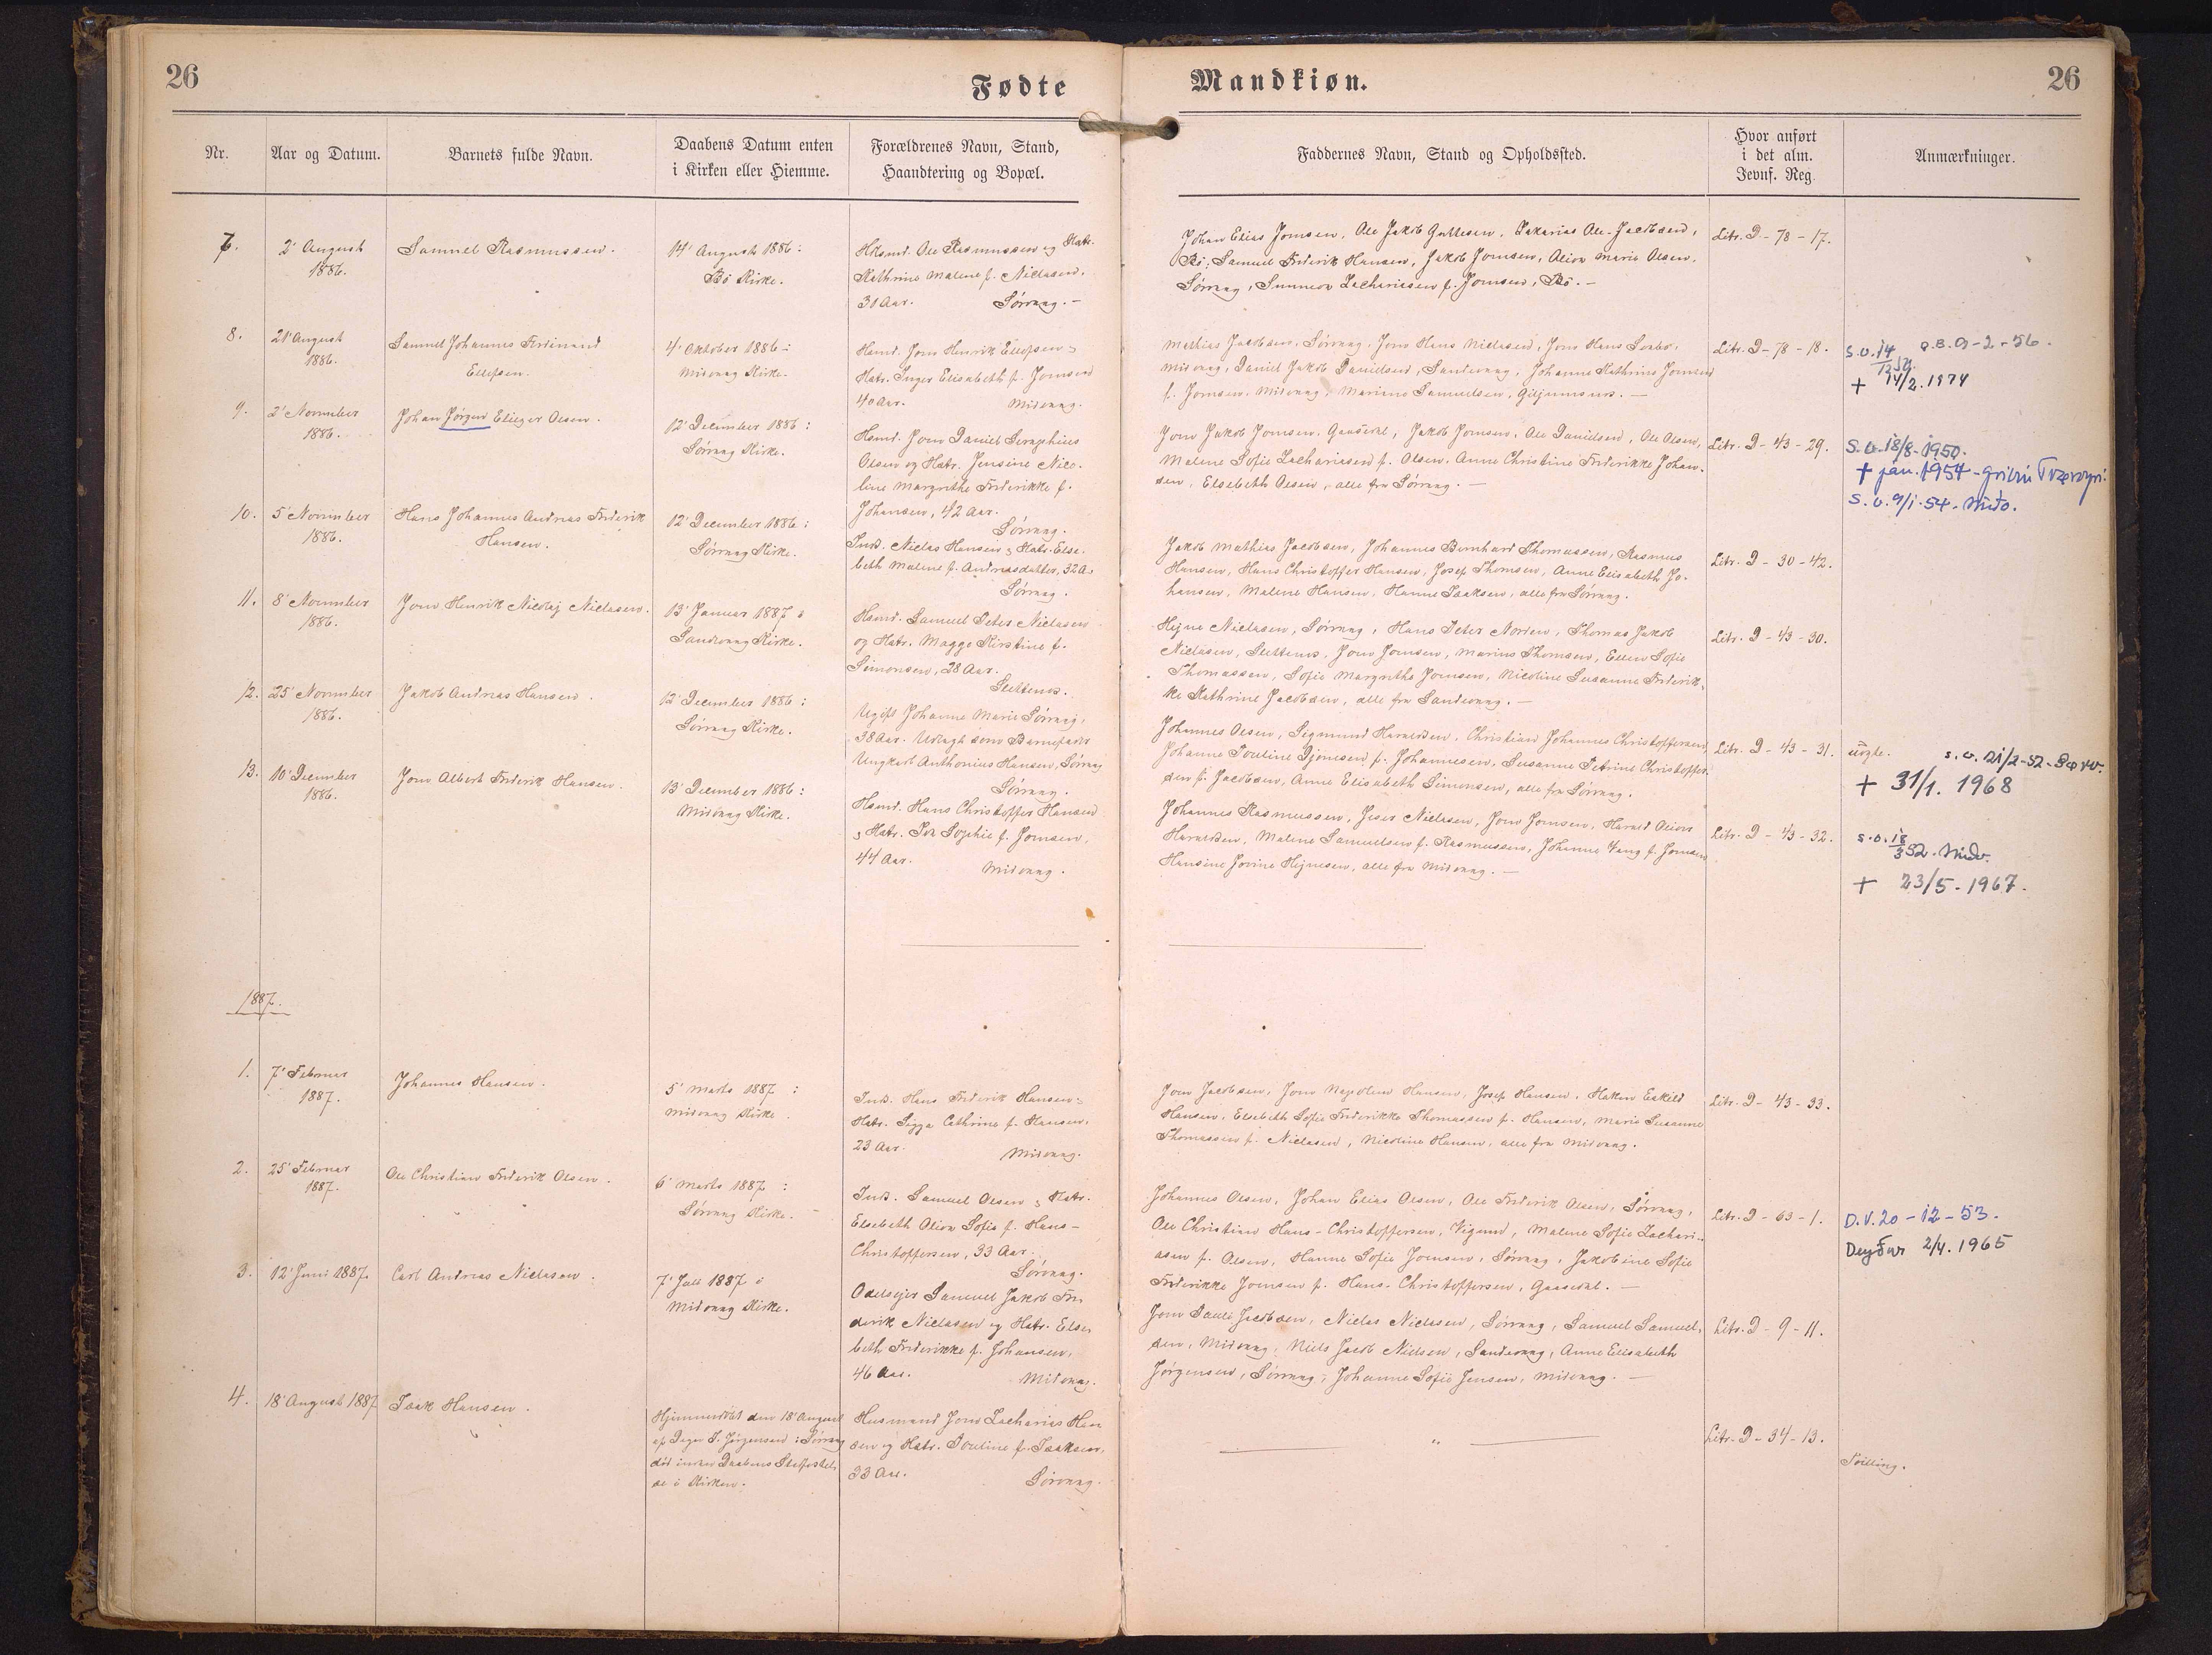 26
Fødte
Mandkiøn.
26
Nr.
Aar og Datum.
Barnets fulde Navn.
Daabens Datum enten
i Kirken eller Hiemme.
Forældrenes Navn, Stand,
Haandtering og Bopæl.
Faddernes Navn, Stand og Opholdssted.
Hvor anført
i det alm.
Jevnf. Reg.
Anmærkninger.
7.
2' August
1886.
Samuel Rasmussen.
14' August 1886:
Bö Kirke.
Husmd. Ole Rasmussen og Hstr.
Kathrine Malene f. Niclasen,
30 Aar. Sörvaag. -
Johan Elias Joensen, Ole Jakob Guttesen, Zakarias Ole-Jacobsen,
Bö; Samuel Frederik Hansen, Jakob Joensen, Alion Marie Olsen,
Sörvaag, Sunneva Zachariasen f. Joensen, Bö. -
Litr. D - 78 - 17.
8.
21' August
1886.
Samuel Johannes Ferdinand
Ellefsen.
4' Oktober 1886:
Midvaag Kirke.
Hsmd. Joen Henrik Ellefsen &
Hstr. Inger Elisabeth f. Joensen
40 Aar. Midvaag.
Mathias Jacobsen, Sörvaag, Joen Hans Niclasen, Joen Hans
Midvaag, Daniel Jakob Danielsen, Sandevaag, Johanne Kathrine Joensen
f. Joensen, Midvaag, Mariane Samuelsen, Giljumsnes. -
Litr. D - 78 - 18.
S.v. 14/12 59
+ 14/2. 1974
9.
2' November
1886.
Johan Jörgen Elieser Olsen.
12' December 1886:
Sörvaag Kirke.
Hsmd. Joen Daniel Seraphius
Olsen og Hstr. Jensine Nico-
line Margrethe Frederikke f.
Johansen, 42 Aar.
Sörvaag.
Joen Jakob Joensen, Gaasedal, Jakob Joensen, Ole Danielsen, Ole Olsen,
Malene Sofie Zachariasen f. Olsen, Anne Christine Frederikke Johan-
sen, Elsebeth Olsen, alle fra Sörvaag. -
Litr. D - 43 - 29.
S.v. 18/8-1950.
+ jan. 1954 - Tvøroyri.
S.v. 9/1-54. Miðv.
10.
5' November
1886.
Hans Johannes Andreas Frederik
Hansen.
12' December 1886:
Sörvaag Kirke.
Inds. Niclas Hansen & Hstr. Else-
beth Malene f. Andreasdatter, 32 A.
Sörvaag.
Jakob Mathias Jacobsen, Johannes Bernhard Thomassen, Rasmus
Hansen, Hans Christoffer Hansen, Josef Thomsen, Anne Elisabeth Jo-
hansen, Malene Hansen, Hanne Isaksen, alle fra Sörvaag.
Litr. D - 30 - 42.
11.
8' November
1886.
Joen Henrik Nicolaj Niclasen.
13' Januar 1887 i
Sandevaag Kirke.
Hsmd. Samuel Peter Niclasen
og Hstr. Magge Kirstine f.
Simonsen, 28 Aar.
Slettenes.
Hejne Niclasen, Sörvaag, Hans Peter Norden, Thomas Jakob
Niclasen, Slettenes, Joen Joensen, Marius Thomsen, Ellen Sofie
Thomassen, Sofie Margretha Joensen, Nicoline Susanne Frederik-
ke Kathrine Jacobsen, alle fra Sandevaag. -
Litr. D - 43 - 30.
12.
25' November
1886.
Jakob Andreas Hansen.
12' December 1886:
Sörvaag Kirke.
Ugift Johanne Marie Sörvaag,
38 Aar. Udlagt som Barnefader
Ungkarl Anthonius Hansen, Sörvaag
Sörvaag.
Johannes Olsen, Sigmund Haraldsen, Christian Johannes Christoffersen,
Johanne Pouline Djonesen f. Johannesen, Susanne Petrine Christoffer-
sen f. Jacobsen, Anne Elisabeth Simonsen, alle fra Sörvaag.
Litr. D - 43 - 31.
uægte.
s.v. 21/2-52.
+ 31/1. 1968
13.
10' December
1886.
Joen Albert Frederik Hansen.
13' December 1886:
Midvaag Kirke.
Hsmd. Hans Christoffer Hansen
& Hstr. Ida Sophie f. Joensen,
44 Aar. Midvaag.
Johannes Rasmussen, Jeser Niclasen, Joen Joensen, Harald
Haraldsen, Malene Samuelsen f. Rasmussen, Johanne Vang f. Joensen
Hansine Jovine Hejnesen, alle fra Midvaag. -
Litr. D - 43 - 32.
s.v. 18/3 52. Miðv.
+ 23/5 - 1967.
1887.
1.
7' Februar
1887.
Johannes Hansen.
5' Marts 1887 :
Midvaag Kirke.
Inds. Hans Frederik Hansen &
Hstr. Sigga Cathrine f. Hansen,
23 Aar. Midvaag.
Joen Jacobsen, Joen Napoleon Hansen, Josef Hansen, Hakon Eskild
Hansen, Elsebeth Sofie Frederikke Thomassen f. Hansen, Marie Susanne
Thomassen f. Niclasen, Nicoline Hansen, alle fra Midvaag.
Litr. D - 43 - 33.
2.
25' Februar
1887.
Ole Christian Frederik Olsen.
6' Marts 1887 :
Sörvaag Kirke.
Inds. Samuel Olsen & Hstr.
Elsebeth Alion Sofie f. Hans-
Christoffersen, 33 Aar.
Sörvaag.
Johannes Olsen, Johan Elias Olsen, Ole Frederik Olsen, Sörvaag,
Ole Christian Hans-Christoffersen, Vigund, Malene Sofie Zachari-
asen f. Olsen, Hanne Sofie Joensen, Sörvaag, Jakobine Sofie
Frederikke Joensen f. Hans-Christoffersen, Gaasedal. -
Litr. D - 63 - 1.
D.V. 20 - 12 - 53.
Deyður 2/4. 1965
3.
12' Juni 1887.
Carl Andreas Niclasen.
7' Juli 1887 i
Midvaag Kirke.
Odelsejer Samuel Jakob Fre-
derik Niclasen og Hstr. Else-
beth Frederikke f. Johansen,
46 Aar. Midvaag.
Joen Pauli Jacobsen, Niclas Niclasen, Sörvaag, Samuel Samuel-
sen, Midvaag, Niels Jacob Nielsen, Sandevaag, Anne Elisabeth
Jørgensen, Sörvaag, Johanne Sofie Jensen, Midvaag. -
Litr. D - 9 - 11.
4.
18' August 1887
Isak Hansen.
Hjemmedöbt den 18' August
af Degn J. Jörgensen i Sörvaag
död inden Daabens Stadfæstel-
se i Kirken.
Husmand Joen Zacharias Han-
sen og Hstr. Pouline f. Isaksen,
33 Aar. Sörvaag.
"
Litr. D - 34 - 13.
Tvilling.